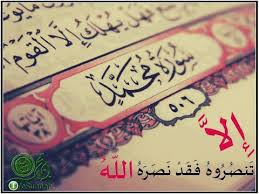 فَهَلْ يُهْلَكُ إِلَّا ٱلْقَوْمُ
سورة محمد
٥٠٦
إِلاَّ
تَنصُرُوهُ فَقَدْ نَصَرَهُ اللّهُ